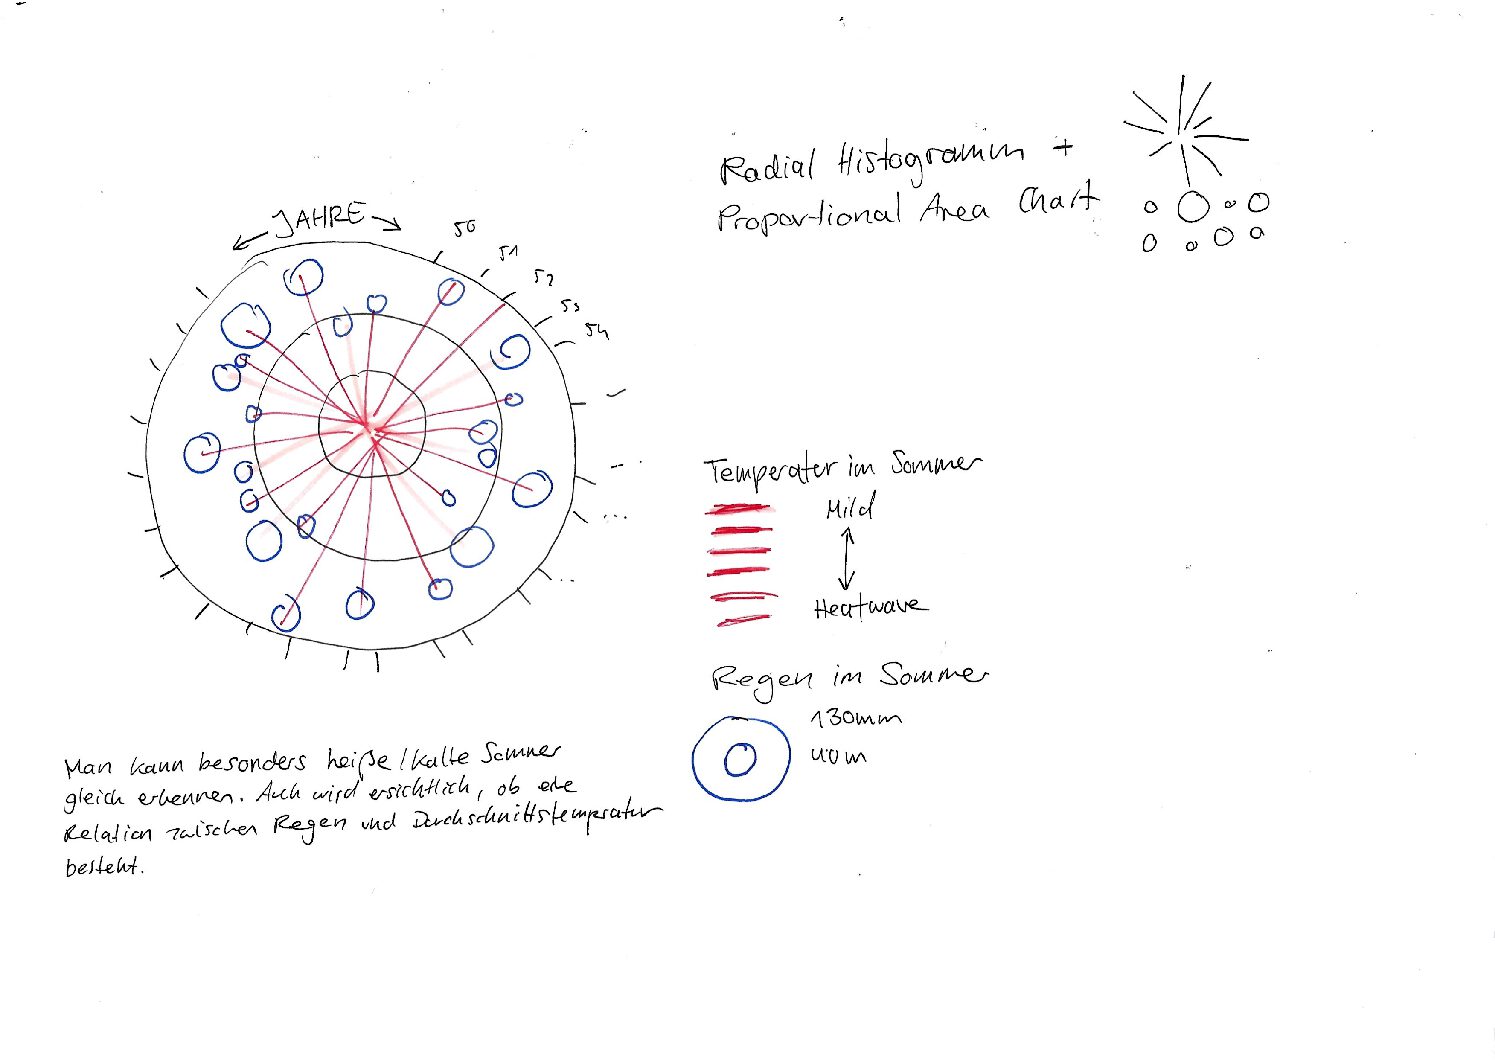 Radial Histogramm +
Proportional Area Chart
← JAHRE →
50
51
52
53
54
...
...
..
Temperatur im Sommer
Mild
Heatwave
Regen im Sommer
130mm
40m
Man kann besonders heiße/kalte Sommer
gleich erkennen. Auch wird ersichtlich, ob eine
Relation zwischen Regen und Durchschnittstemperatur
besteht.